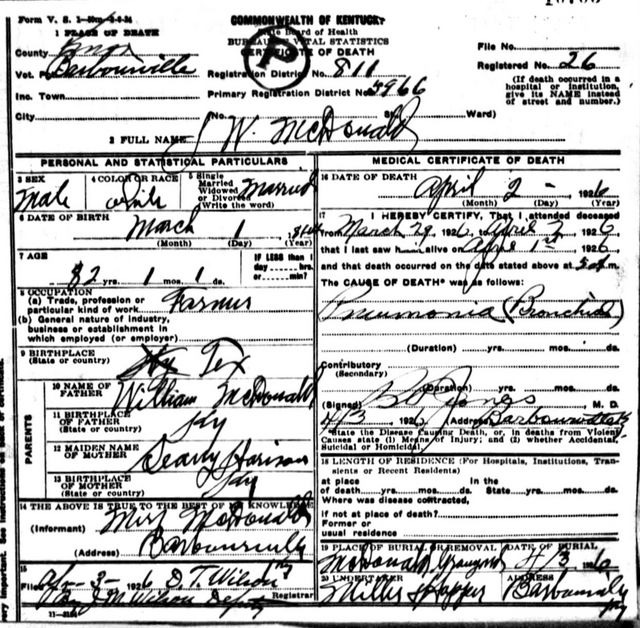 Form V. S. 1-50m-5-6-24
COMMONWEALTH OF KENTUCKY
State Board of Health
BUREAU OF VITAL STATISTICS
CERTIFICATE OF DEATH
P
1 PLACE OF DEATH
County Knox
Vot. Pct. Barbourville
Inc. Town
City
Registration District No. 811
Primary Registration District No. 4966
(No. St. Ward)
File No.
Registered No. 26
(If death occurred in a
hospital or institution,
give its NAME instead
of street and number.)
2 FULL NAME J W. McDonald
PERSONAL AND STATISTICAL PARTICULARS
3 SEX
Male
4 COLOR OR RACE
White
5 Single
Married
Widowed
or Divorced
(Write the word)
Married
6 DATE OF BIRTH
March 1
(Month) (Day) (Year)
7 AGE
82 yrs. 1 mos. 1 ds.
IF LESS than 1
day ... hrs.
or ... min?
8 OCCUPATION
(a) Trade, profession or
particular kind of work Farmer
(b) General nature of industry,
business or establishment in
which employed (or employer)
9 BIRTHPLACE
(State or country)
Ky Tex
PARENTS
10 NAME OF
FATHER
William McDonald
11 BIRTHPLACE
OF FATHER
(State or country)
Ky
12 MAIDEN NAME
OF MOTHER
Harison
13 BIRTHPLACE
OF MOTHER
(State or country)
Ky
14 THE ABOVE IS TRUE TO THE BEST OF MY KNOWLEDGE
(Informant) McDonald
(Address) Barbourville
15
Filed Apr-3-26 D. T. Wilson
M. Wilson Deputy Registrar
MEDICAL CERTIFICATE OF DEATH
16 DATE OF DEATH
April 2 - 1926
(Month) (Day) (Year)
17 I HEREBY CERTIFY, That I attended deceased
from March 29, 1926, to April 2, 1926
that I last saw h alive on Apr 1st 1926
and that death occurred on the date stated above at 5 A m.
The CAUSE OF DEATH* was as follows:
Pneumonia (Bronchial)
(Duration) yrs. mos. ds.
Contributory
(Secondary)
(Duration) yrs. mos. ds.
(Signed) Jones M. D.
4/3 1926 Barbourville Ky
*State the Disease Causing Death, or, in deaths from Violent
Causes state (1) Means of Injury; and (2) whether Accidental,
Suicidal or Homicidal.
18 LENGTH OF RESIDENCE (For Hospitals, Institutions, Tran-
sients or Recent Residents)
at place In the
of death yrs. mos. ds. State yrs. mos. ds.
Where was disease contracted,
if not at place of death?
Former or
usual residence
19 PLACE OF BURIAL OR REMOVAL
McDonald Graveyard
DATE OF BURIAL
4/3 1926
20 UNDERTAKER
Miller Hopper
ADDRESS
Barbourville
Ky